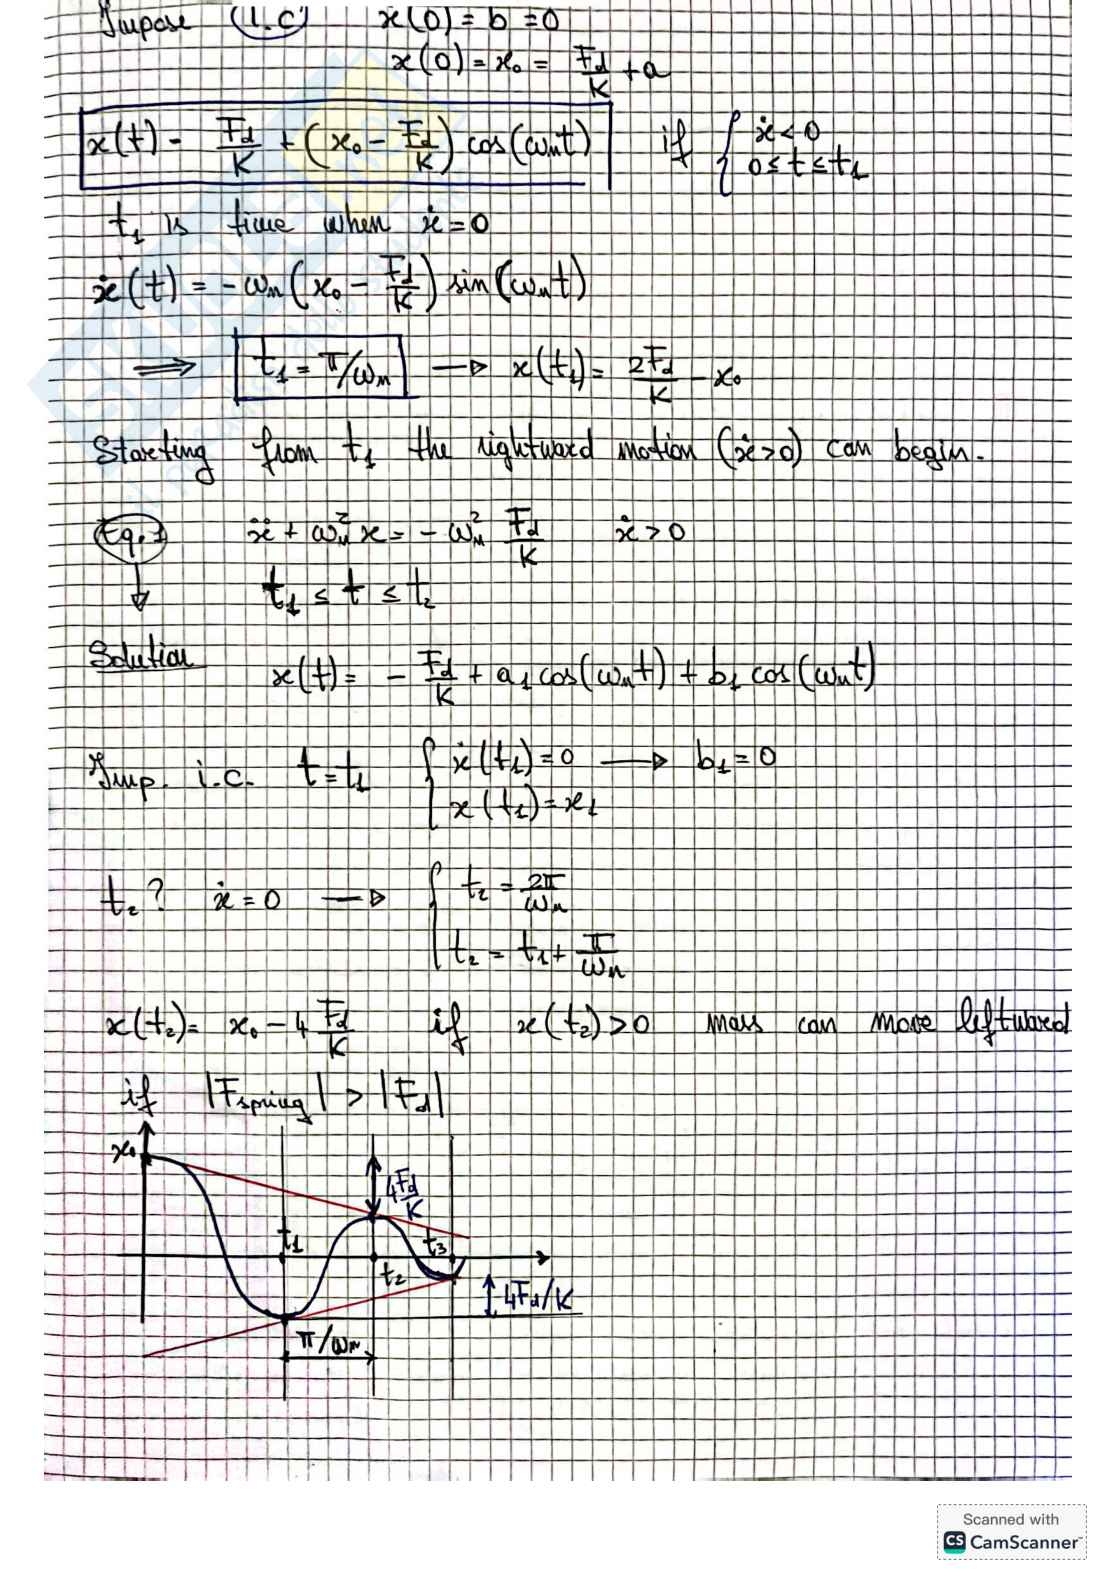 Impose (I.C) ẋ(0) = b = 0
x(0) = x₀ = F_d/K + a
x(t) - F_d/K + (x₀ - F_d/K) cos(ωₙt) if { ẋ < 0
0 ≤ t ≤ t₁
t₁ is time when ẋ = 0
ẋ(t) = -ωₙ(x₀ - F_d/K) sin(ωₙt)
⟹ t₁ = π/ωₙ → x(t₁) = 2F_d/K - x₀
Starting from t₁ the rightward motion (ẋ>0) can begin.
Eq.1 ẍ + ωₙ² x = - ωₙ² F_d/K ẋ > 0
t₁ ≤ t ≤ t₂
Solution x(t) = - F_d/K + a₁ cos(ωₙt) + b₁ cos(ωₙt)
Imp. i.c. t = t₁ { ẋ(t₁) = 0 → b₁ = 0
x(t₁) = x₁
t₂? ẋ = 0 → { t₂ = 2π/ωₙ
t₂ = t₁ + π/ωₙ
x(t₂) = x₀ - 4 F_d/K if x(t₂) > 0 mass can move leftward
if |Fspring| > |F_d|
x₀
4F_d/K
t₁
t₃
t₂
4F_d/K
π/ωₙ
Scanned with
CS CamScanner